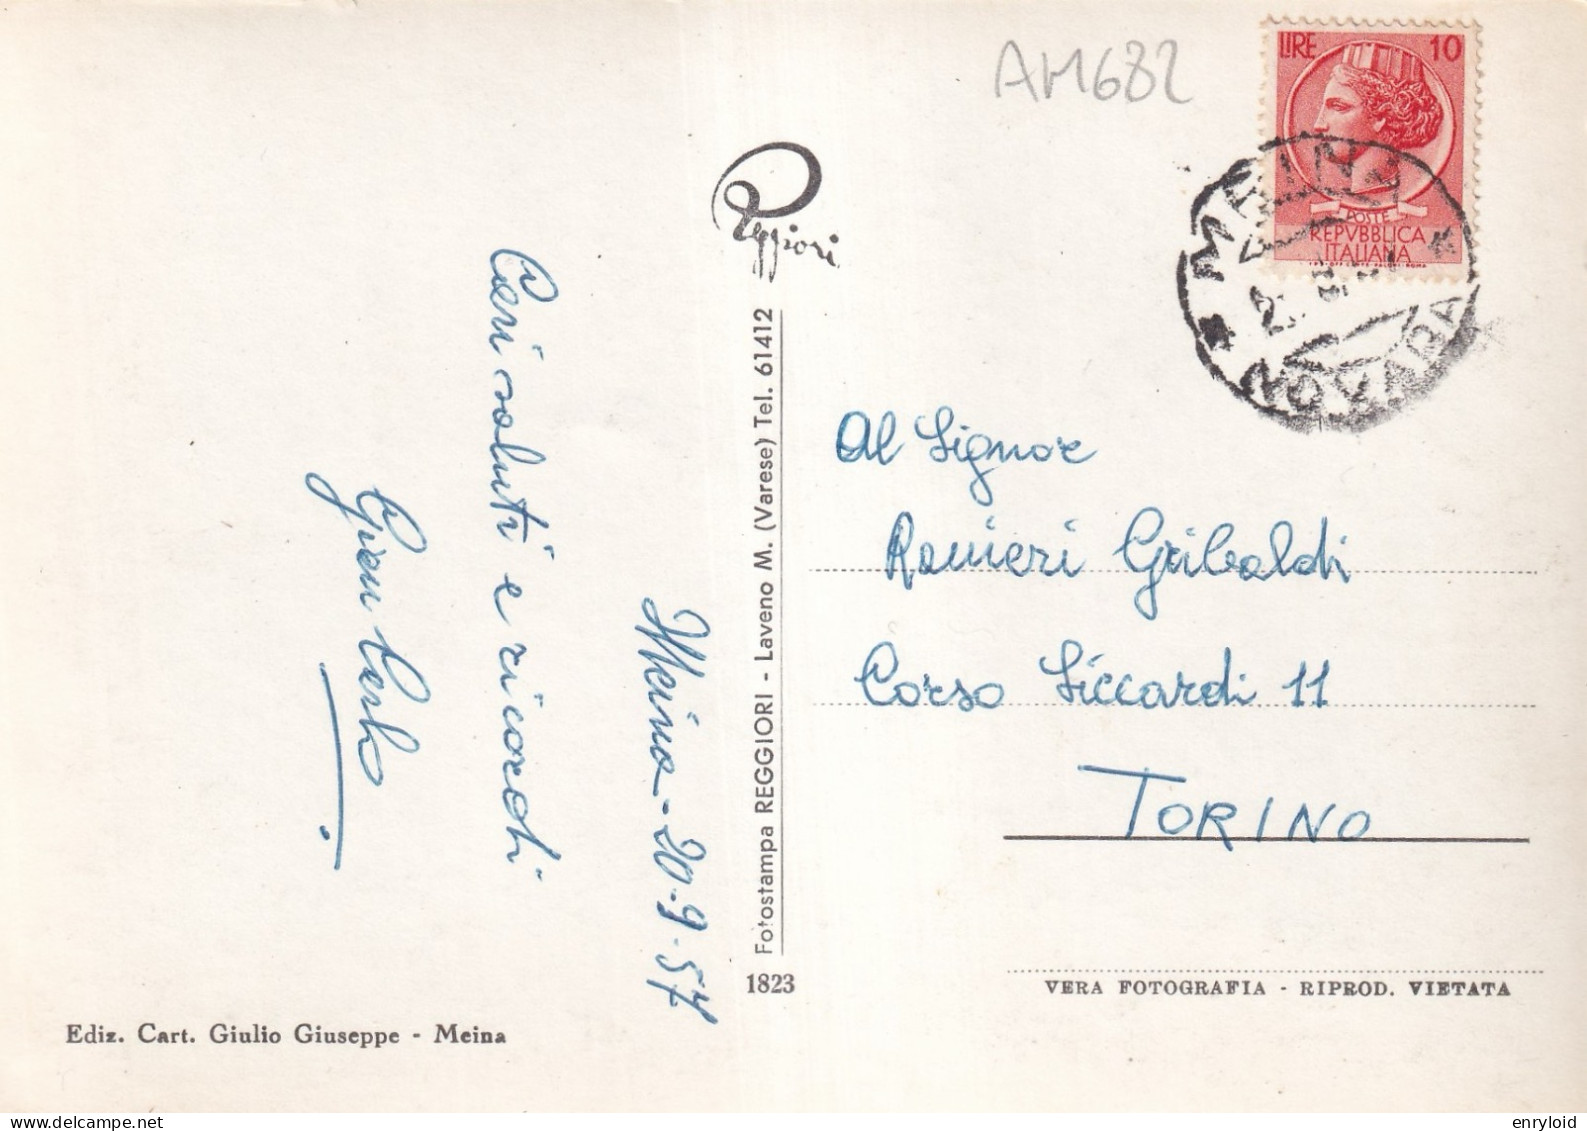 AM682
LIRE 10
POSTE
REPVBBLICA
ITALIANA
MEINA
NOVARA
Reggiori
Cari saluti e ricordi
Gian Carlo
Meina - 20-9-57
Fotostampa REGGIORI - Laveno M. (Varese) Tel. 61412
1823
Al Signor
Ranieri Gribaldi
Corso Siccardi 11
TORINO
VERA FOTOGRAFIA - RIPROD. VIETATA
Ediz. Cart. Giulio Giuseppe - Meina
enryloid